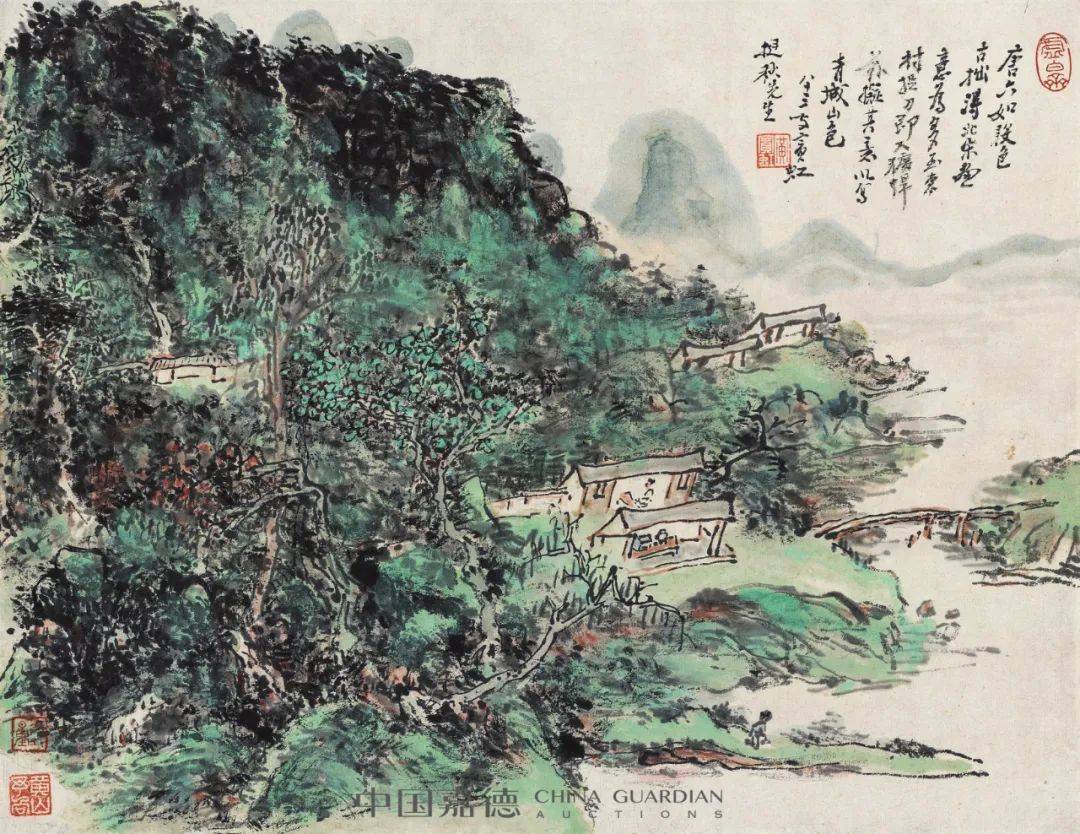 唐六如設色
古拙得北宋畫
意為多
村操刀即太獷悍
茲擬其意以寫
青城山色
八十三叟賓虹
挺秋先生
中国嘉德 CHINA GUARDIAN
AUCTIONS